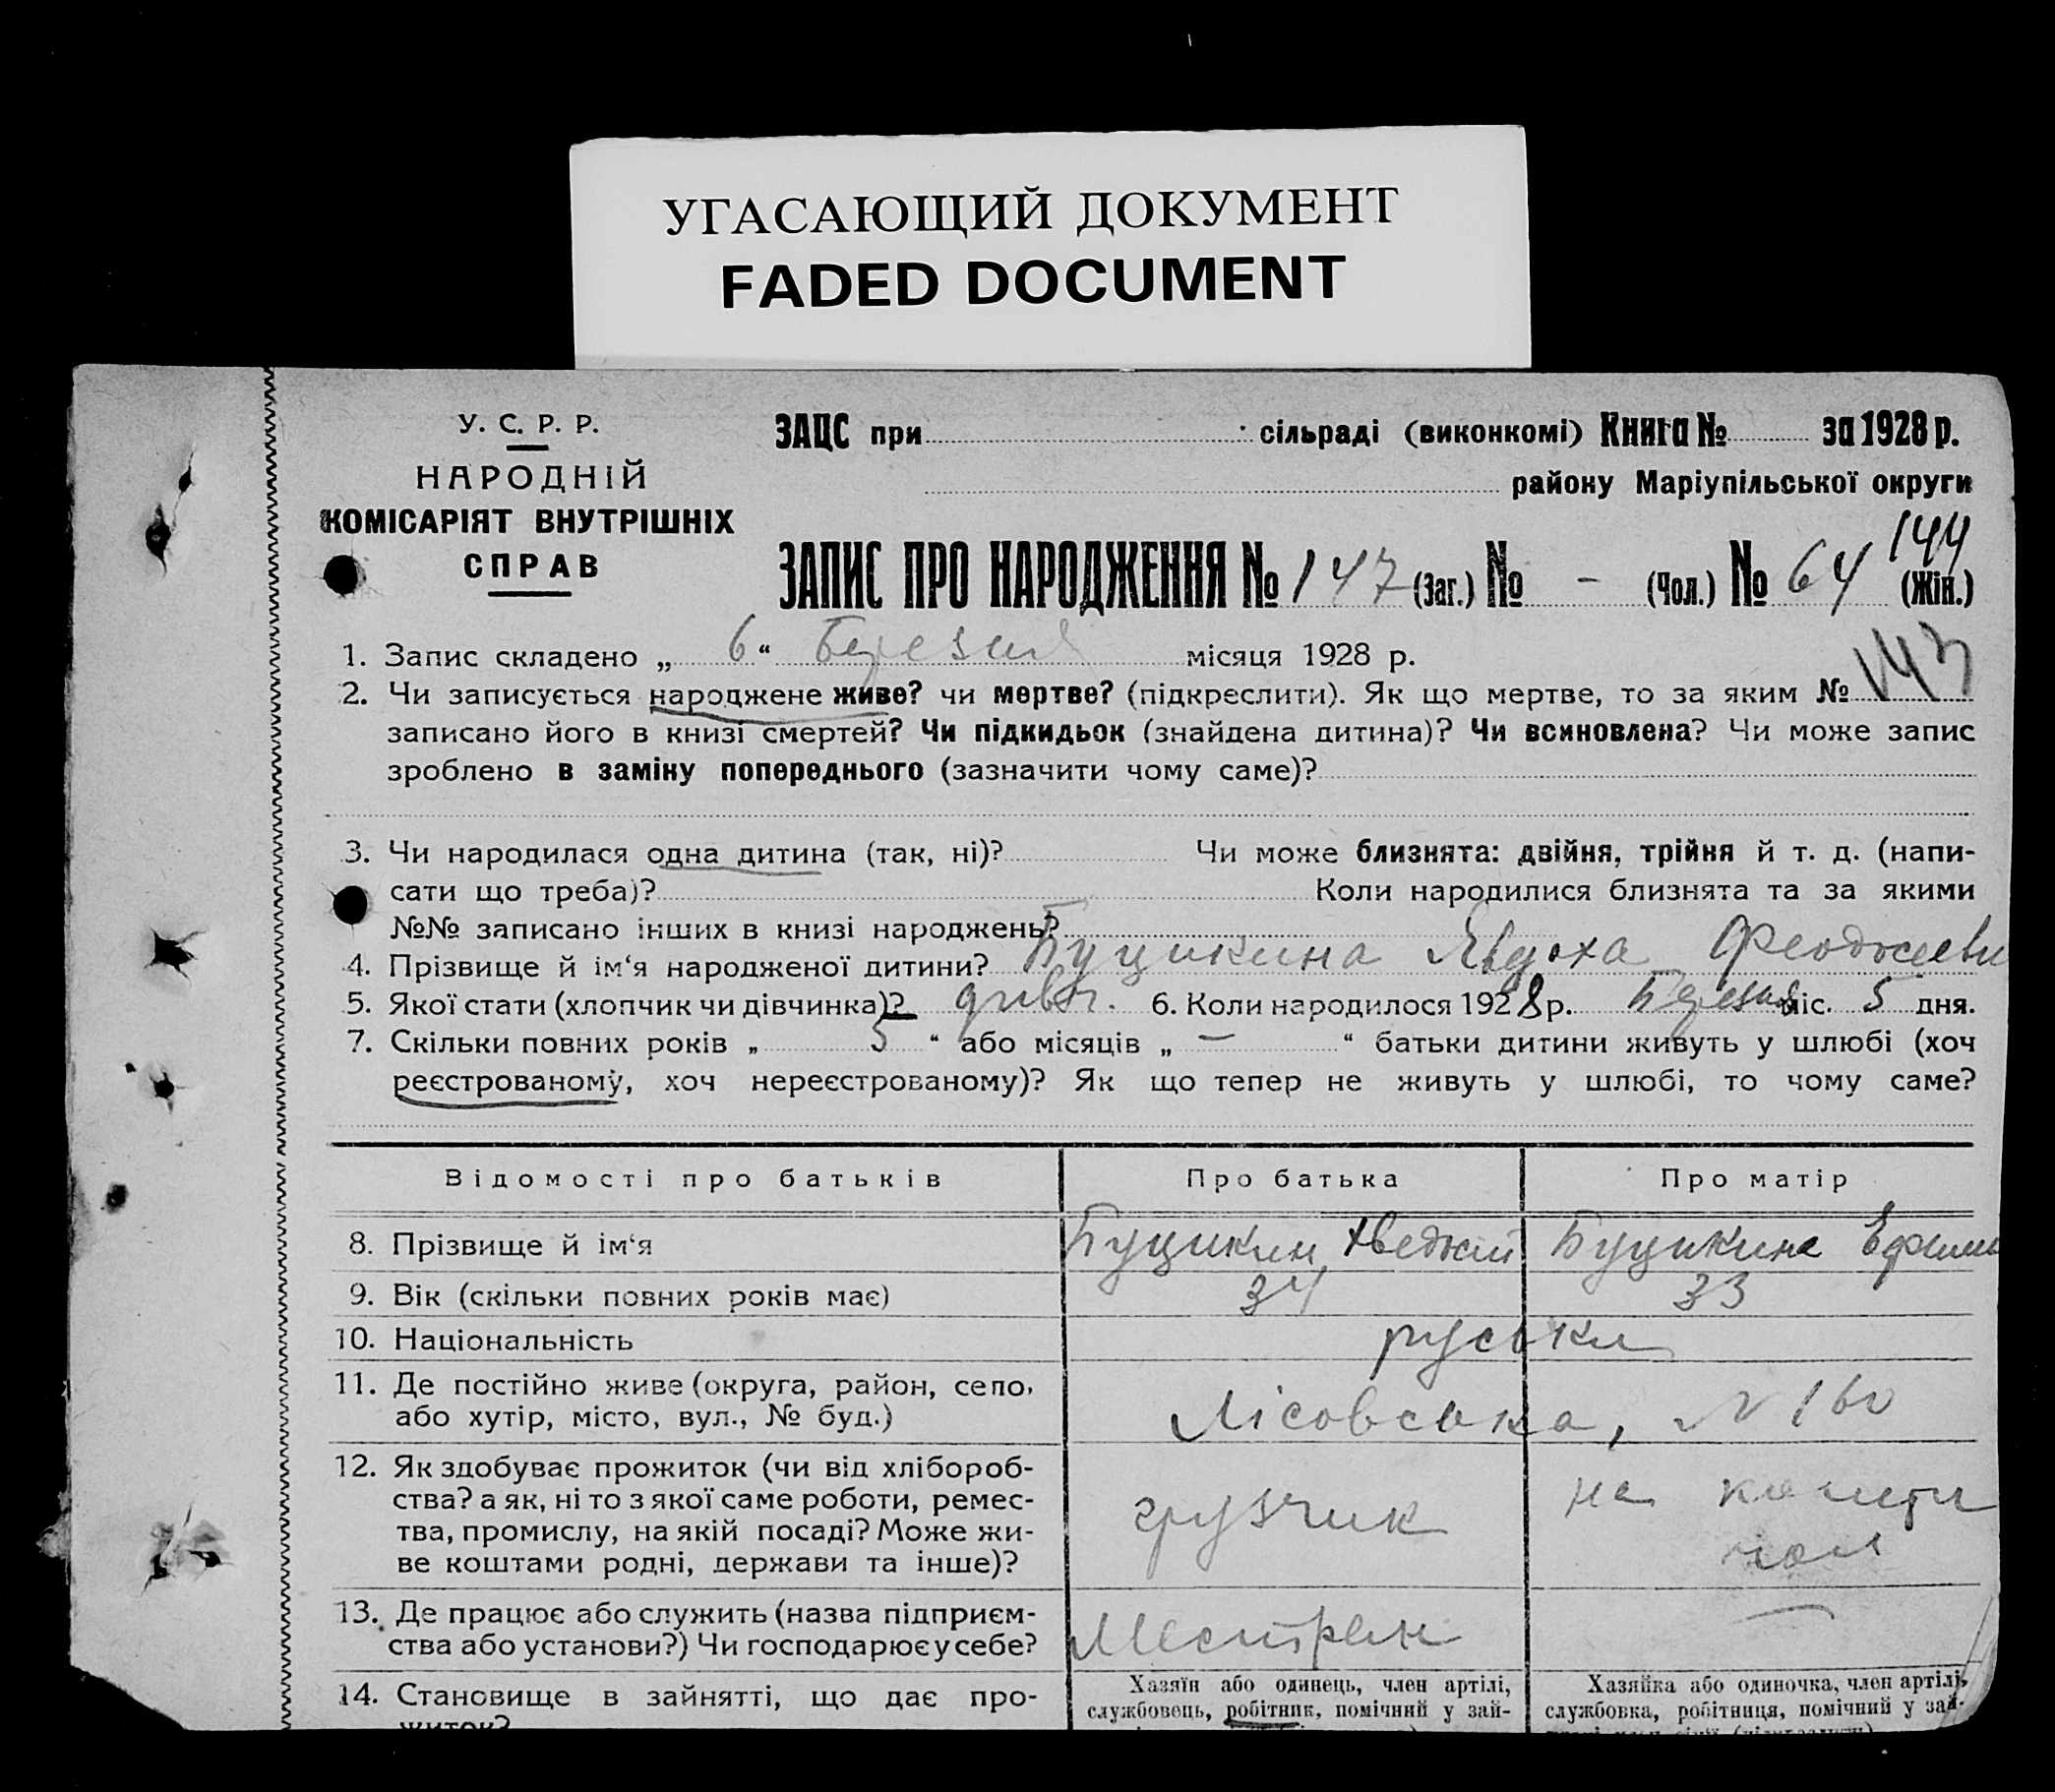 УГАСАЮЩИЙ ДОКУМЕНТ
FADED DOCUMENT
У. С. Р. Р.
НАРОДНІЙ
КОМІСАРІЯТ ВНУТРІШНІХ
СПРАВ
ЗАЦС при сільраді (виконкомі) Книга № за 1928 р.
району Маріупільської округи
144
ЗАПИС ПРО НАРОДЖЕННЯ № 147 (Заг.) № - (Чол.) № 64 (Жін.)
1. Запис складено „ 6 “ Березня місяця 1928 р.
143
2. Чи записується народжене живе? чи мертве? (підкреслити). Як що мертве, то за яким №
записано його в книзі смертей? Чи підкидьок (знайдена дитина)? Чи всиновлена? Чи може запис
зроблено в заміну попереднього (зазначити чому саме)?
3. Чи народилася одна дитина (так, ні)? Чи може близнята: двійня, трійня й т. д. (напи-
сати що треба)? Коли народилися близнята та за якими
№№ записано інших в книзі народжень?
4. Прізвище й ім‘я народженої дитини? Буцикина Явдоха
5. Якої стати (хлопчик чи дівчинка)? дівч. 6. Коли народилося 1928 р. Березня міс. 5 дня.
7. Скільки повних років „ 5 “ або місяців „ — “ батьки дитини живуть у шлюбі (хоч
реєстрованому, хоч нереєстрованому)? Як що тепер не живуть у шлюбі, то чому саме?
Відомості про батьків Про батька Про матір
8. Прізвище й ім‘я Буцикин Буцикина
9. Вік (скільки повних років має) 34 33
10. Національність руськи
11. Де постійно живе (округа, район, село,
або хутір, місто, вул., № буд.) Лісовська, № 160
12. Як здобуває прожиток (чи від хлібороб-
ства? а як, ні то з якої саме роботи, ремес-
тва, промислу, на якій посаді? Може жи-
ве коштами родні, держави та інше)?
грузчик
на кошти
чол
13. Де працює або служить (назва підприєм-
ства або установи?) Чи господарює у себе?
Местран —
14. Становище в зайнятті, що дає про-
житок?
Хазяїн або одинець, член артілі,
службовець, робітник, помічний у зай-
Хазяйка або одиночка, член артілі,
службовка, робітниця, помічний у зай-